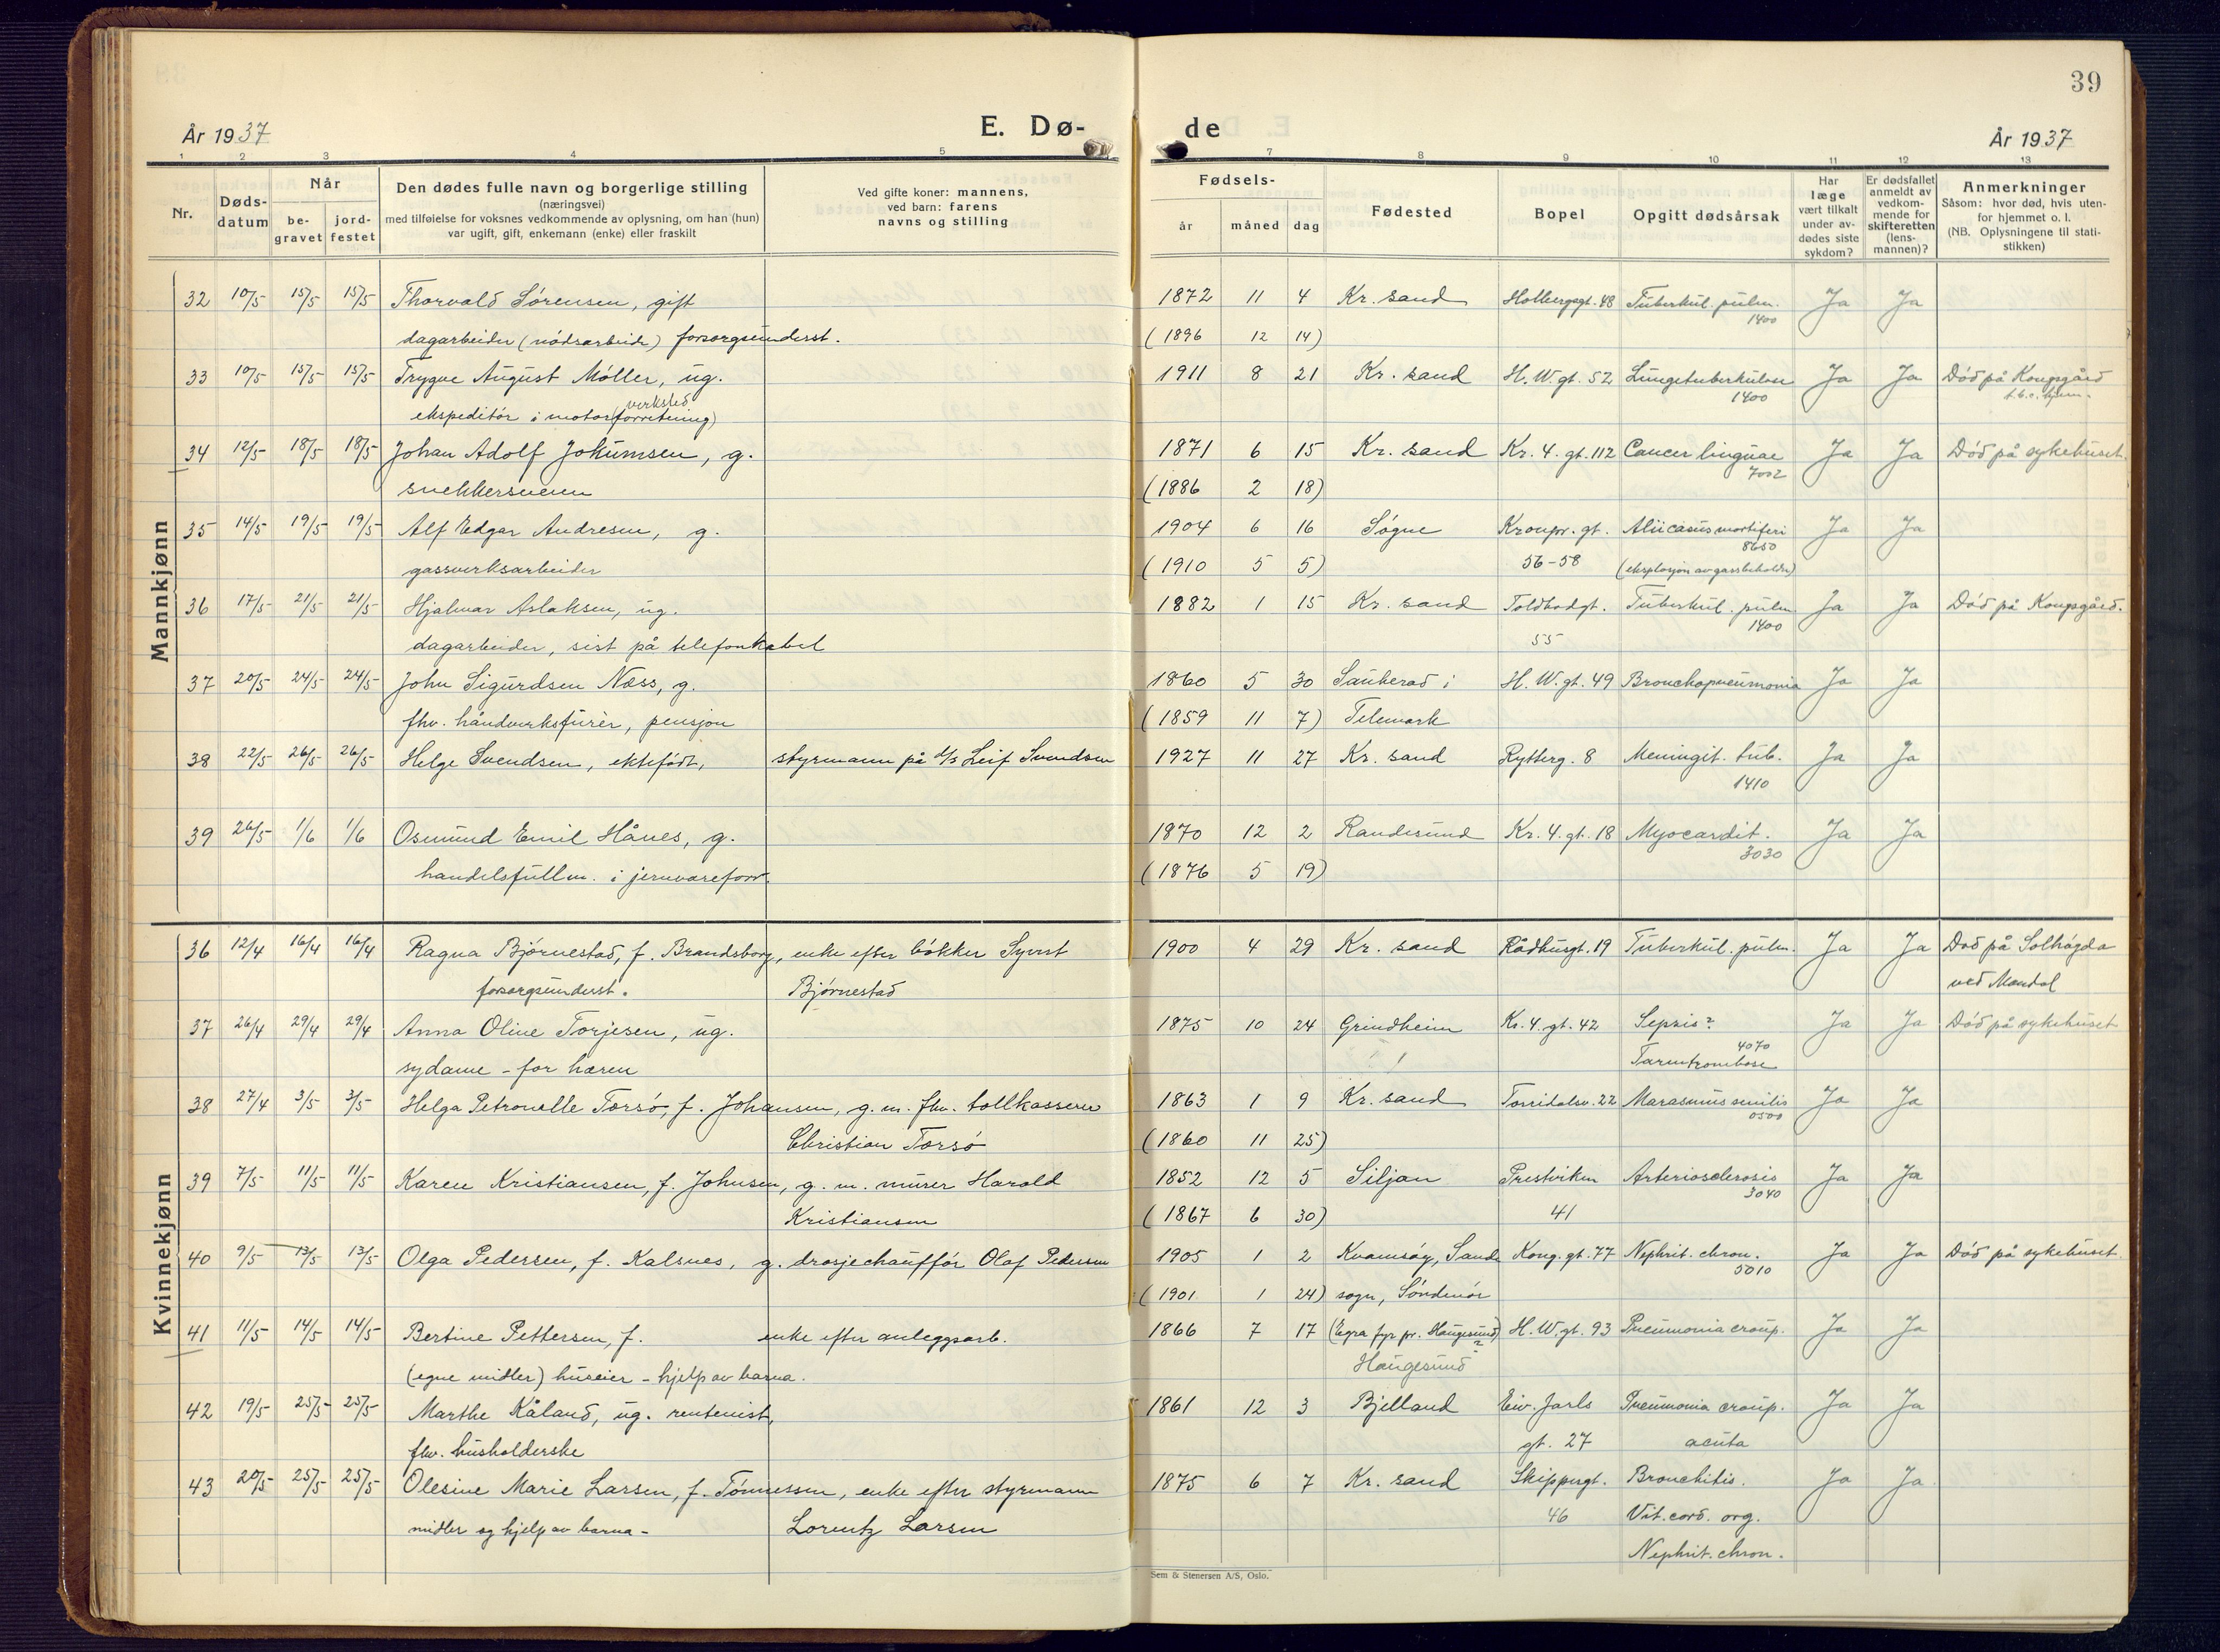 39
År 1937 E. Dø- de År 1937
1 2 3 4 5 7 8 9 10 11 12 13
Nr. Døds-datum Når be-gravet jord-festet Den dødes fulle navn og borgerlige stilling
(næringsvei)
med tilføielse for voksnes vedkommende av oplysning, om han (hun)
var ugift, gift, enkemann (enke) eller fraskilt
Ved gifte koner: mannens,
ved barn: farens
navns og stilling
Fødsels- år måned dag Fødested Bopel Opgitt dødsårsak
Har læge vært tilkalt under av-dødes siste sykdom?
Er dødsfallet anmeldt av vedkom-mende for skifteretten (lens-mannen)?
Anmerkninger
Såsom: hvor død, hvis uten-
for hjemmet o. l.
(NB. Oplysningene til stati-
stikken)
Mannkjønn
32 10/5 15/5 15/5 Thorvald Sørensen, gift 1872 11 4 Kr. sand Holbergsgt. 48 Tuberkul. pulm. 1400 Ja Ja
dagarbeider (nødsarbeide) forsorgsunderst. (1896 12 14)
33 10/5 15/5 15/5 Trygve August Møller, ug. 1911 8 21 Kr. sand H. W. gt. 52 Lungetuberkulose 1400 Ja Ja Død på Kongsgård
t.b.c. hjem.
ekspeditør i motor(forretning) verksted
34 12/5 18/5 18/5 Johan Adolf Jokumsen, g. 1871 6 15 Kr. sand Kr. 4. gt. 112 Cancer linguae 7002 Ja Ja Død på sykehuset.
snekkersvenn (1886 2 18)
35 14/5 19/5 19/5 Alf Edgar Andresen, g. 1904 6 16 Søgne Kronpr. gt. Alii casus mortiferi 8650 Ja Ja
gassverksarbeider (1910 5 5) 56-58 (eksplosjon av gassbeholder)
36 17/5 21/5 21/5 Hjalmar Aslaksen, ug. 1882 1 15 Kr. sand Toldbodgt. Tuberkul. pulm 1400 Ja Ja Død på Kongsgård.
dagarbeider, sist på telefonkabel 55
37 20/5 24/5 24/5 John Sigurdsen Næss, g. 1860 5 30 Sauherad i H. W. gt. 49 Bronchopneumonia Ja Ja
fhv. håndverksfurèr, pensjon (1859 11 7) Telemark
38 22/5 26/5 26/5 Helge Svendsen, ektefødt, styrmann på d/s Leif Svendsen 1927 11 27 Kr. sand Rytterg. 8 Meningit. tub. 1410 Ja Ja
39 26/5 1/6 1/6 Osmund Emil Hånes, g. 1870 12 2 Randesund Kr. 4. gt. 18 Myocardit. 3030 Ja Ja
handelsfullm. i jernvareforr. (1876 5 19)
Kvinnekjønn
36 12/4 16/4 16/4 Ragna Bjørnestad, f. Brandsborg, enke efter bøkker Syvert 1900 4 29 Kr. sand Rådhusgt. 19 Tuberkul. pulm. Ja Ja Død på Solhøgda
forsorgsunderst. Bjørnestad ved Mandal
37 26/4 29/4 29/4 Anna Oline Torjesen, ug. 1875 10 24 Grindheim Kr. 4. gt. 42 Sepsis? 4070 Ja Ja Død på sykehuset
sydame - for hæren Tarmtrombose
38 27/4 3/5 3/5 Helga Petronelle Torsø, f. Johansen, g. m. fhv. tollkasserer 1863 1 9 Kr. sand Torridalsv. 22 Marasmus senilis 0500 Ja Ja
Christian Torsø (1860 11 25)
39 7/5 11/5 11/5 Karen Kristiansen, f. Johnsen, g. m. murer Harald 1852 12 5 Siljan Prestviken Arteriosclerosis 3040 Ja Ja
Kristiansen (1867 6 30) 41
40 9/5 13/5 13/5 Olga Pedersen, f. Kalsnes, g. drosjechauffør Olaf Pedersen 1905 1 2 Kvamsøy, Sande Kong. gt. 77 Nephrit. chron. 5010 Ja Ja Død på sykehuset.
(1901 1 24) sogn, Søndmør
41 11/5 14/5 14/5 Bertine Pettersen, f. enke efter anleggsarb. 1866 7 17 fyr pr. Haugesund)? H. W. gt. 93 Pneumonia croup. Ja Ja
(egne midler) huseier - hjelp av barna. Haugesund
42 19/5 25/5 25/5 Marthe Kåland, ug. rentenist, 1861 12 3 Bjelland Eiv. Jarls Pneumonia croup. Ja Ja
fhv. husholderske gt. 27 acuta
43 20/5 25/5 25/5 Olesine Marie Larsen, f. Tønnessen, enke efter styrmann 1875 6 7 Kr. sand Skippergt. Bronchitis. Ja Ja
midler og hjelp av barna - Lorentz Larsen 46 Vit. cord. org.
Nephrit. chron.
Sem & Stenersen A/S, Oslo.